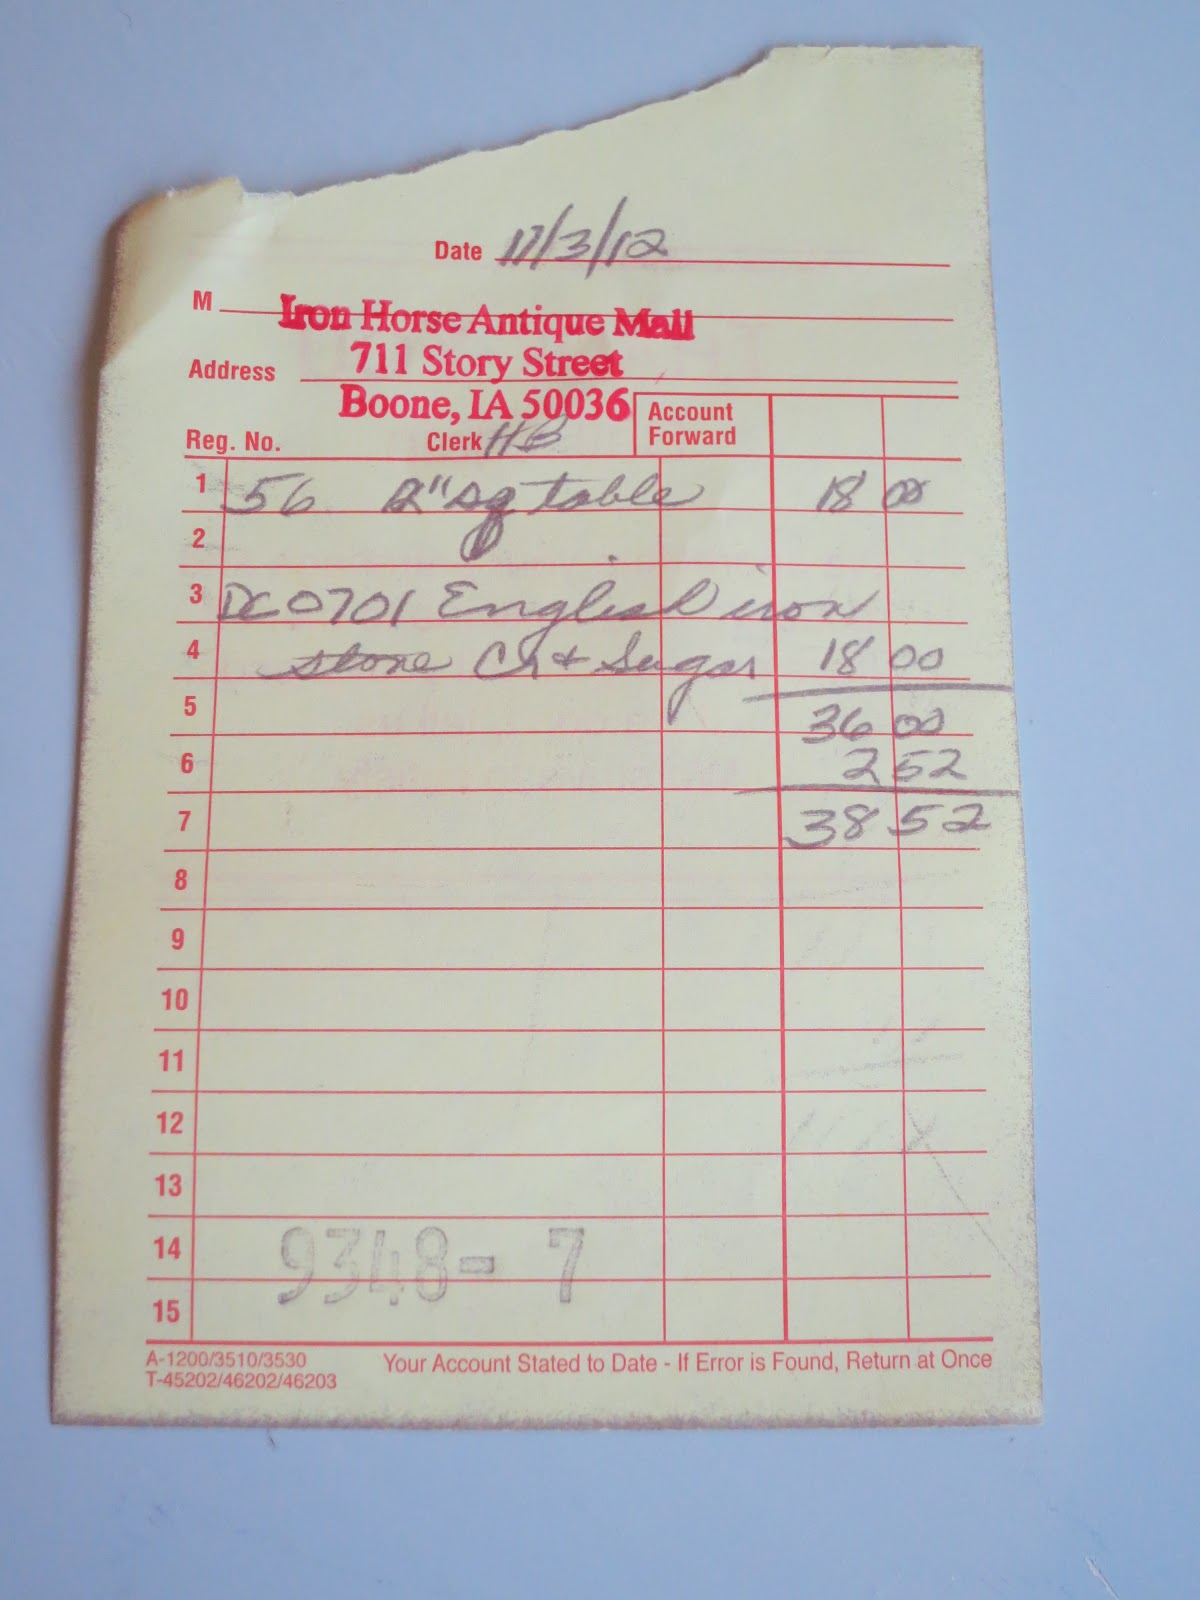 Date 11/3/12
M
Iron Horse Antique Mall
711 Story Street
Address
Boone, IA 50036
Account Forward
Reg. No. Clerk HB
1 56 12" sq table 18 00
2
3 DC0701 English iron
4 stone Cr + Sugar 18 00
5 36 00
6 2 52
7 38 52
8
9
10
11
12
13
14 9348- 7
15
A-1200/3510/3530
T-45202/46202/46203
Your Account Stated to Date - If Error is Found, Return at Once